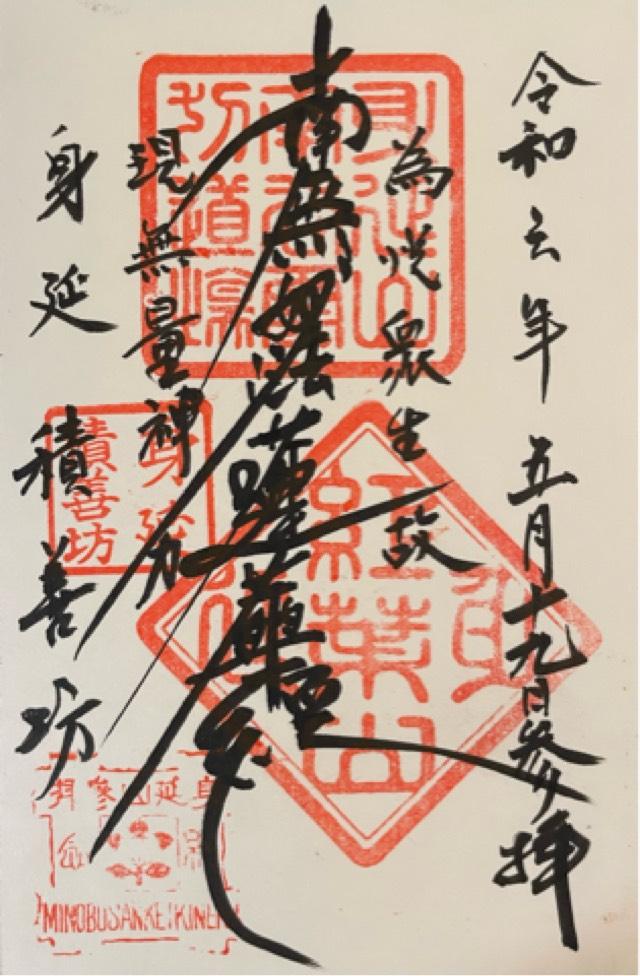 令和元年五月十九日参拝
為悦衆生故
南無妙法蓮華經
現無量神力
身延 積善坊
身延山
道場
紅葉山
身延
積善坊
MINOBUSANKEIKINEN